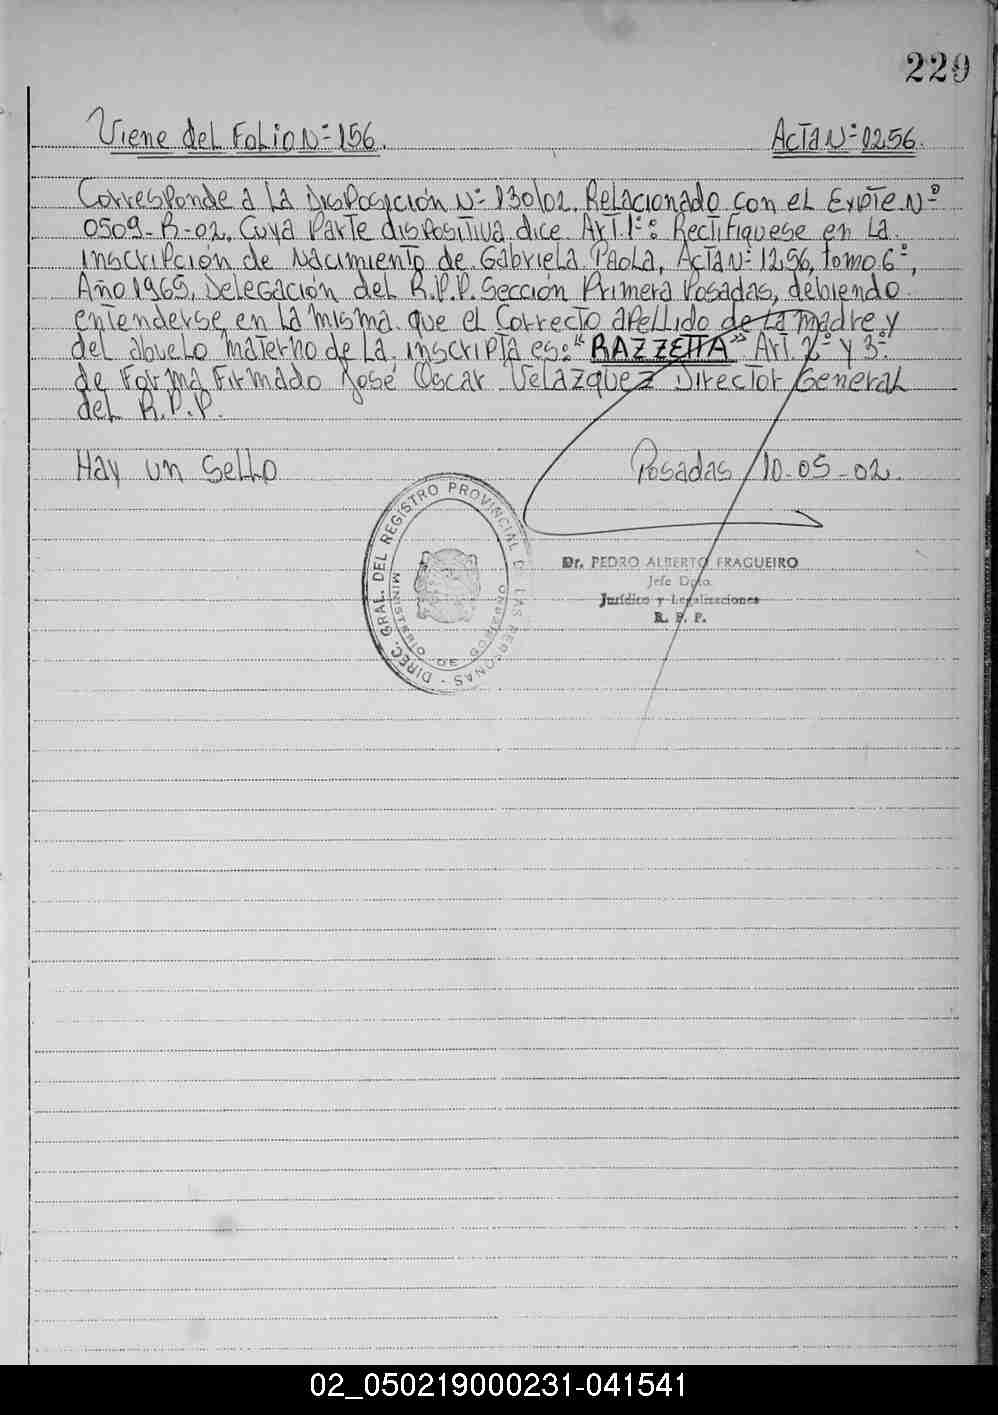 229
Viene del Folio Nº 156.
Acta Nº 1256.
Corresponde a la Disposición Nº 130/02. Relacionado con el Expte. Nº
0509-R-02. Cuya Parte dispositiva dice Art. 1º: Rectifiquese en la
inscripción de Nacimiento de Gabriela Paola, Acta Nº 1256, tomo 6º,
Año 1965, Delegación del R.P.P. Sección Primera Posadas, debiendo
entenderse en la misma que el Correcto apellido de la madre y
del abuelo materno de la inscripta es: "RAZZETTA" Art. 2º y 3º
de Forma Firmado José Oscar Velazquez Director General
del R.P.P.
Hay un Sello
Posadas, 10-05-02.
DIREC. GRAL. DEL REGISTRO PROVINCIAL DE LAS PERSONAS -
MINISTERIO DE GOBIERNO
Dr. PEDRO ALBERTO FRAGUEIRO
Jefe Dpto.
Jurídico y Legalizaciones
R. P. P.
02_050219000231-041541